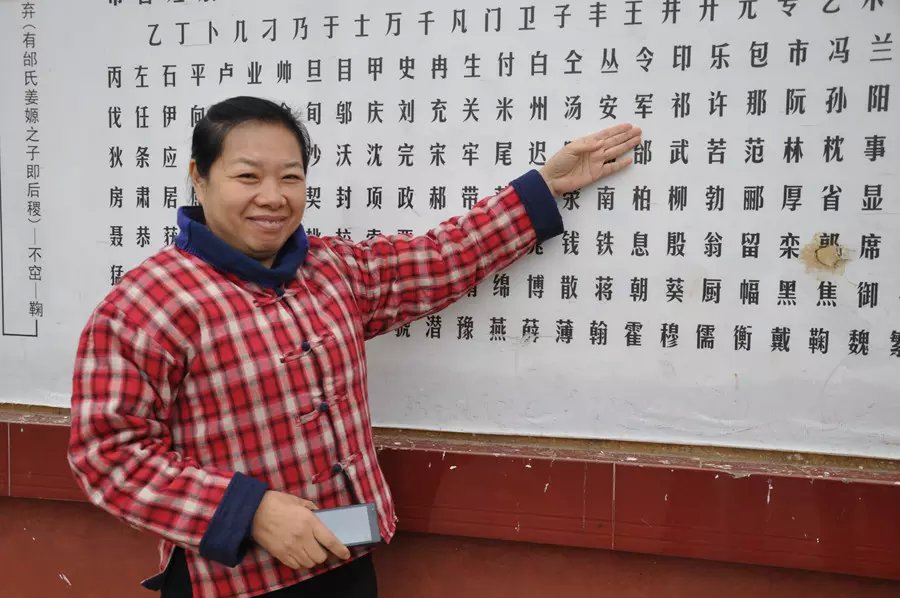 弃（有邰氏姜嫄之子即后稷）—不空—鞠
乙丁卜几刁乃于士万千凡门卫子丰王井开元专艺木
丙左石平卢业帅旦目甲史冉生付白仝丛令印乐包市冯兰
伐任伊向旬邬庆刘充关米州汤安军祁许那阮孙阳
狄条应沙沃沈完宋牢尾迟邰武苦范林枕事
房肃居契封项政郝带泉南柏柳勃郦厚省显
聂恭获索贾钱铁息殷翁留栾郭席
猛绵博散蒋朝葵厨幅黑焦御
虢潜豫燕薛薄翰霍穆儒衡戴鞠魏繁